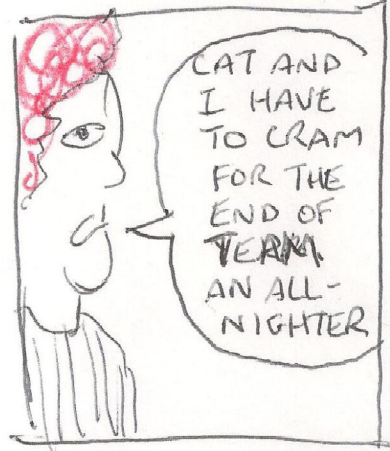 CAT AND
I HAVE
TO CRAM
FOR THE
END OF
TEAM.
AN ALL-
NIGHTER